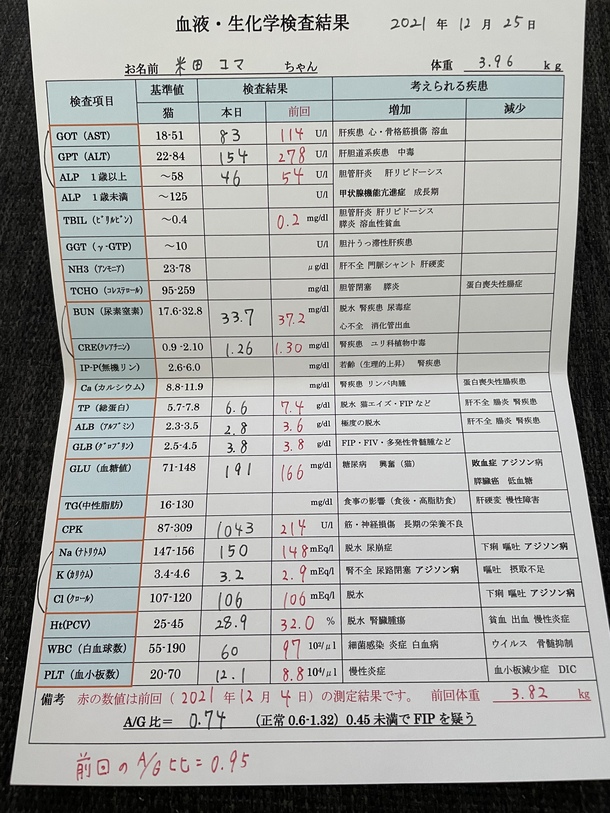 血液・生化学検査結果 2021 年 12 月 25 日
お名前 米田 コマ ちゃん 体重 3.96 kg
検査項目 基準値 検査結果 考えられる疾患
猫 本日 前回 増加 減少
GOT (AST) 18-51 83 114 U/l 肝疾患 心・骨格筋損傷 溶血
GPT (ALT) 22-84 154 278 U/l 肝胆道系疾患 中毒
ALP 1歳以上 ～58 46 54 U/l 胆管肝炎 肝リピドーシス
ALP 1歳未満 ～125 U/l 甲状腺機能亢進症 成長期
TBIL (ビリルビン) ～0.4 0.2 mg/dl 胆管肝炎 肝リピドーシス
膵炎 溶血性貧血
GGT (γ-GTP) ～10 U/l 胆汁うっ滞性肝疾患
NH3 (アンモニア) 23-78 μg/dl 肝不全 門脈シャント 肝硬変
TCHO (コレステロール) 95-259 mg/dl 胆管閉塞 膵炎 蛋白喪失性腸症
BUN (尿素窒素) 17.6-32.8 33.7 37.2 mg/dl 脱水 腎疾患 尿毒症
心不全 消化管出血
CRE(クレアチニン) 0.9-2.10 1.26 1.30 mg/dl 腎疾患 ユリ科植物中毒
IP-P(無機リン) 2.6-6.0 mg/dl 若齢（生理的上昇） 腎疾患
Ca (カルシウム) 8.8-11.9 mg/dl 腎疾患 リンパ肉腫 蛋白喪失性腸疾患
TP (総蛋白) 5.7-7.8 6.6 7.4 g/dl 脱水 猫エイズ・FIP など 肝不全 腸炎 腎疾患
ALB (アルブミン) 2.3-3.5 2.8 3.6 g/dl 極度の脱水 肝不全 腸炎 腎疾患
GLB (グロブリン) 2.5-4.5 3.8 3.8 g/dl FIP・FIV・多発性骨髄腫など
GLU (血糖値) 71-148 191 166 mg/dl 糖尿病 興奮（猫） 敗血症 アジソン病
膵臓癌 低血糖
TG(中性脂肪) 16-130 mg/dl 食事の影響（食後・高脂肪食） 肝硬変 慢性障害
CPK 87-309 1043 214 U/l 筋・神経損傷 長期の栄養不良
Na (ナトリウム) 147-156 150 148 mEq/l 脱水 尿崩症 下痢 嘔吐 アジソン病
K (カリウム) 3.4-4.6 3.2 2.9 mEq/l 腎不全 尿路閉塞 アジソン病 嘔吐 摂取不足
Cl (クロール) 107-120 106 106 mEq/l 脱水 下痢 嘔吐 アジソン病
Ht(PCV) 25-45 28.9 32.0 % 脱水 腎臓腫瘍 貧血 出血 慢性炎症
WBC (白血球数) 55-190 60 97 10²/μl 細菌感染 炎症 白血病 ウイルス 骨髄抑制
PLT (血小板数) 20-70 12.1 8.8 10⁴/μl 慢性炎症 血小板減少症 DIC
備考 赤の数値は前回（2021 年 12 月 4 日）の測定結果です。 前回体重 3.82 kg
A/G 比＝ 0.74 （正常 0.6-1.32）0.45 未満で FIP を疑う
前回の A/G 比＝0.95